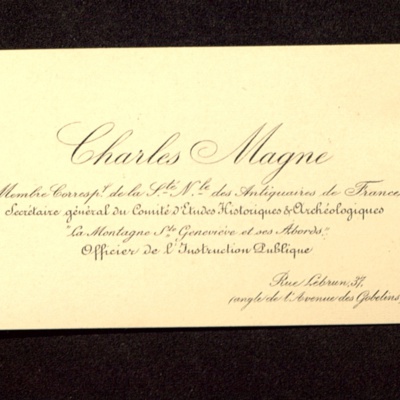 Charles Magne
Membre Corresp.t de la S.té N.le des Antiquaires de France
Secrétaire général du Comité d'Etudes Historiques & Archéologiques
"La Montagne S.te Geneviève et ses Abords."
Officier de l'Instruction Publique
Rue Lebrun, 37,
(angle de l'Avenue des Gobelins